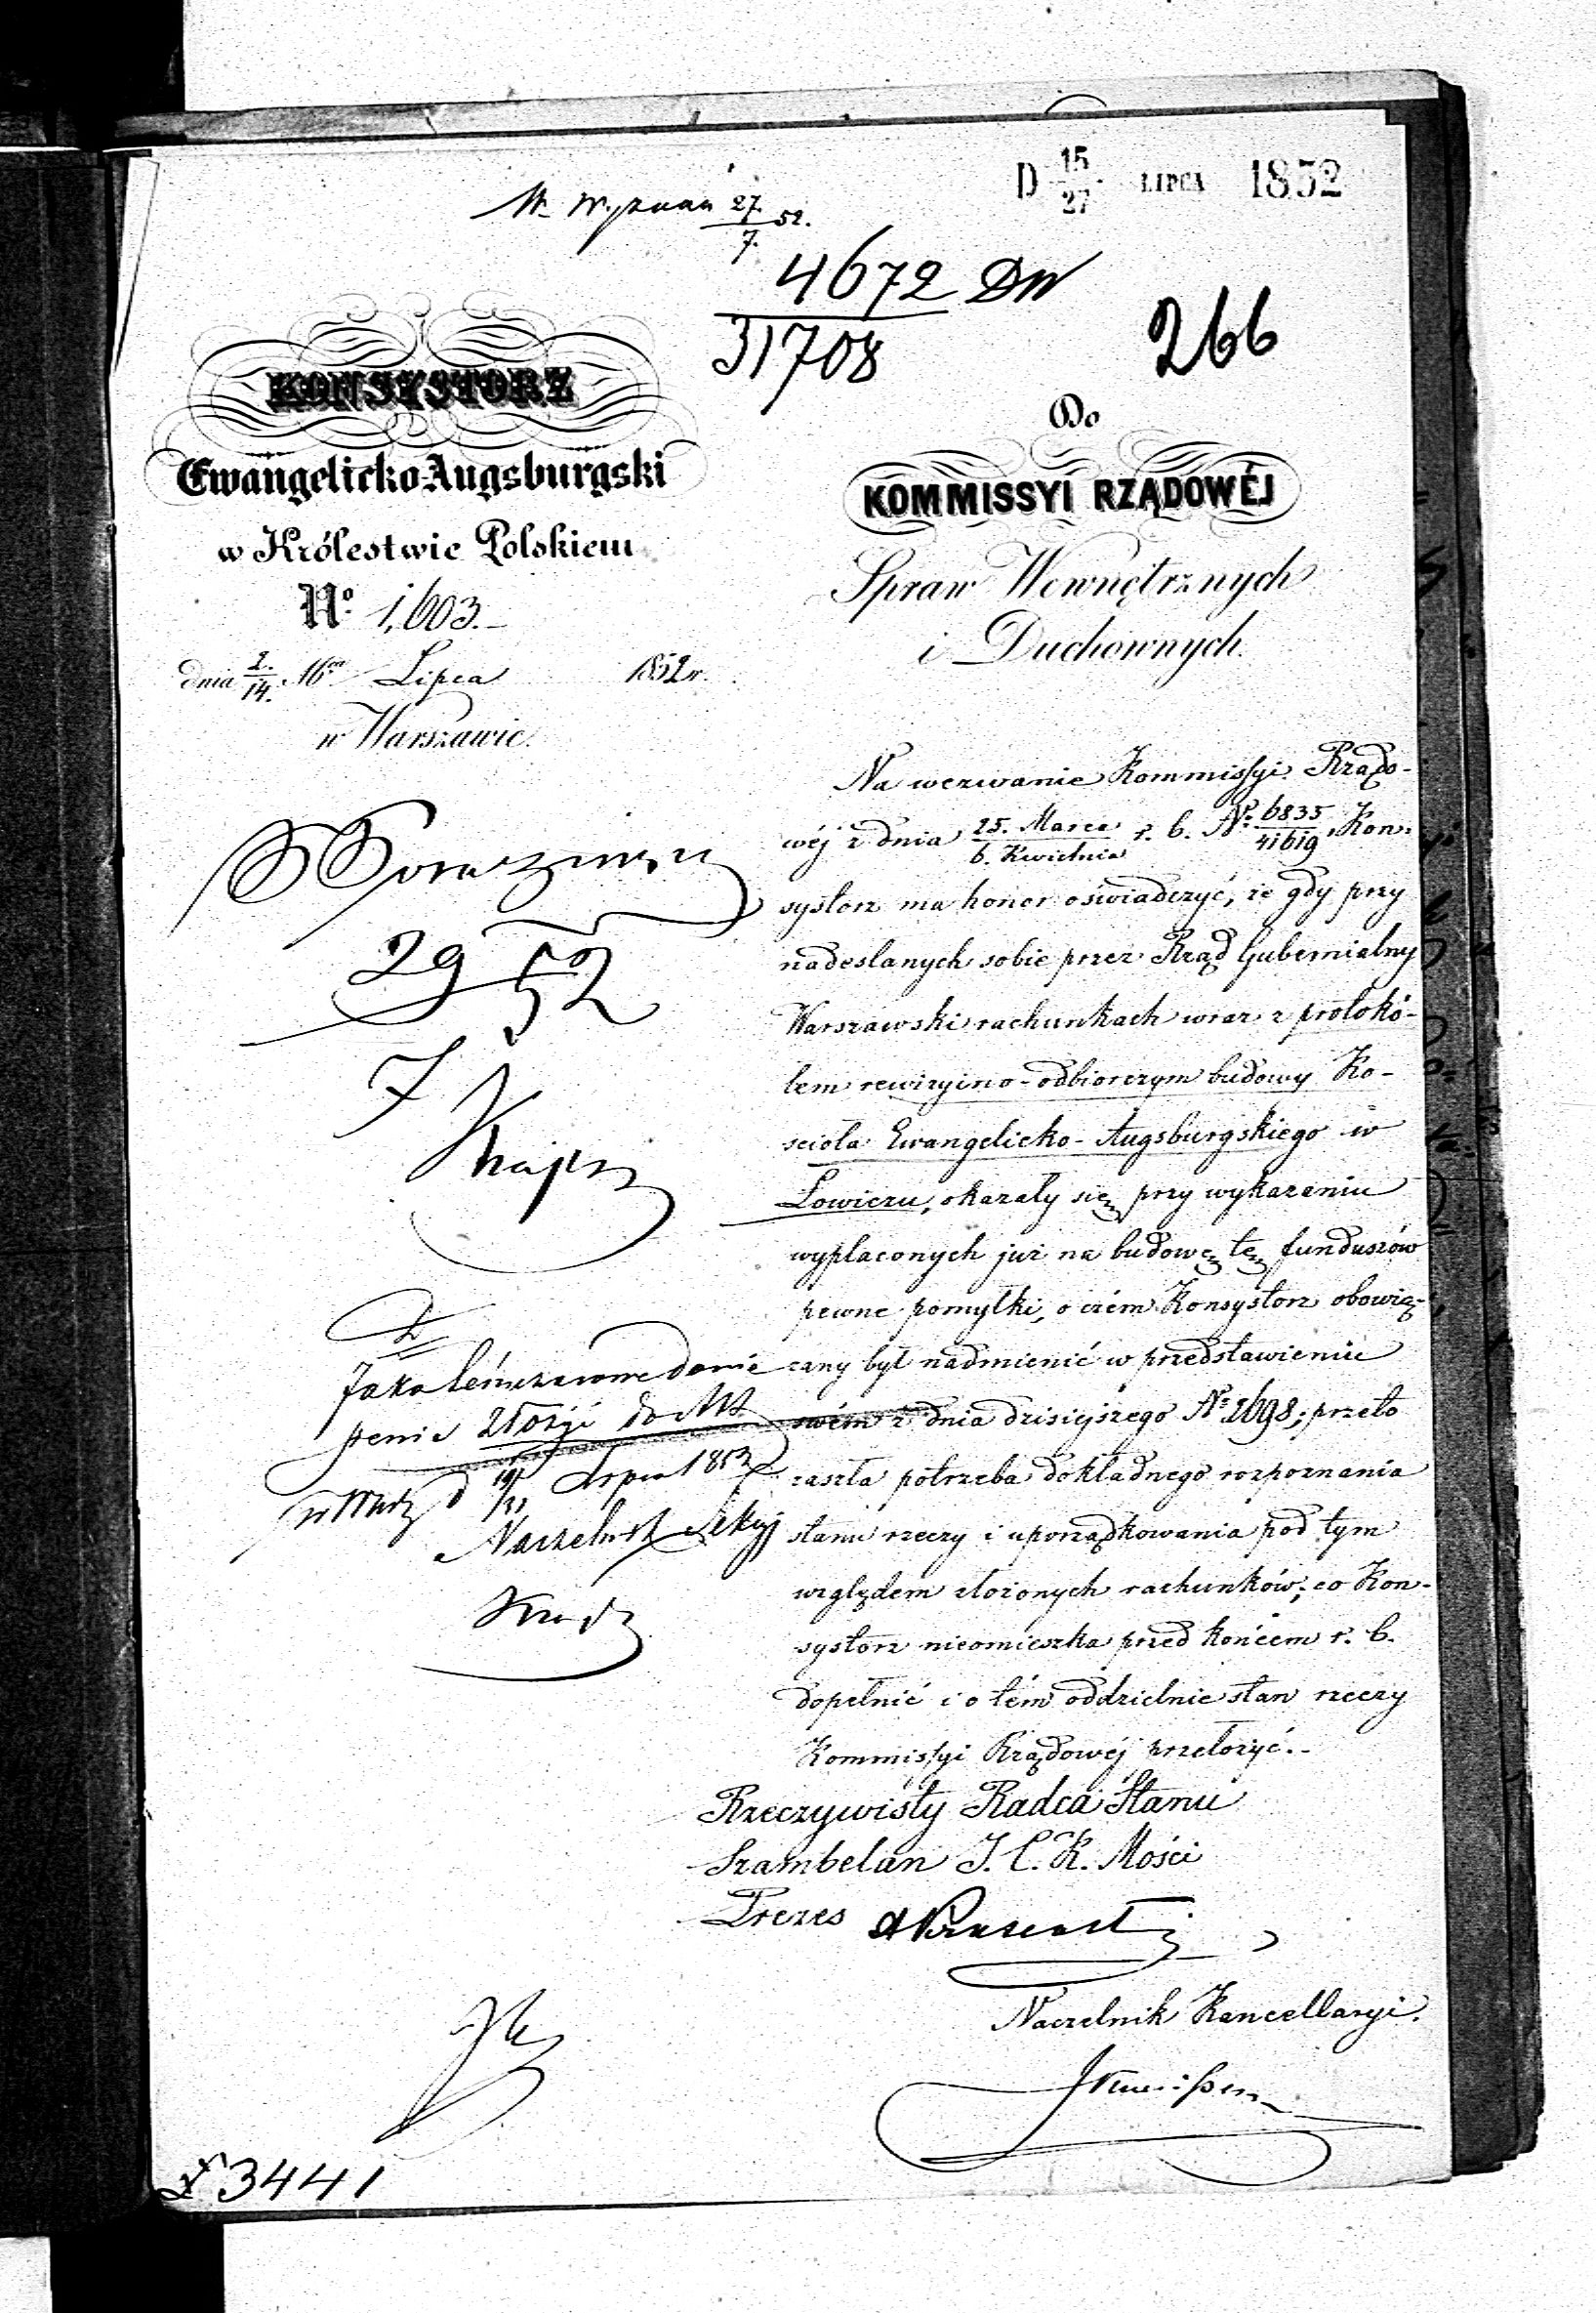 D 15/27 LIPCA 1852
W. Wyznań 27/7. 52.
4672 DW
31708
266
KONSYSTORZ
Ewangelicko-Augsburgski
w Królestwie Polskiem
No. 1,603.
dnia 2./14. Mca Lipca 1852 r.
w Warszawie.
Do
KOMMISSYI RZĄDOWÉJ
Spraw Wewnętrznych
i Duchownych.
Na wezwanie Kommissyi Rządo-
wéj z dnia 25. Marca/6. Kwietnia r. b. No. 6835/41619, Kon-
systorz ma honor oświadczyć, że gdy przy
nadesłanych sobie przez Rząd Gubernialny
Warszawski rachunkach wraz z protokó-
łem rewizyino-odbiorczym budowy Ko-
ścioła Ewangelicko-Augsburgskiego w
Łowiczu, okazały się przy wykazaniu
wypłaconych już na budowę tę funduszów
pewne pomyłki, o czém Konsystorz obowią-
zany był nadmienić w przedstawieniu
swém z dnia dzisiejszego No. 1698; przeto
zaszła potrzeba dokładnego rozpoznania
stanu rzeczy i uporządkowania pod tym
względem złożonych rachunków; co Kon-
systorz nieomieszka przed końcem r. b.
dopełnić i o tém oddzielnie stan rzeczy
Kommissyi Rządowéj przełożyć.
Rzeczywisty Radca Stanu
Szambelan J. C. K. Mości
Prezes
Naczelnik Kancellaryi.
29 52
7
Jako
złożyć do Akt
Lipca 1852
Naczelnik Sekcyi
3441